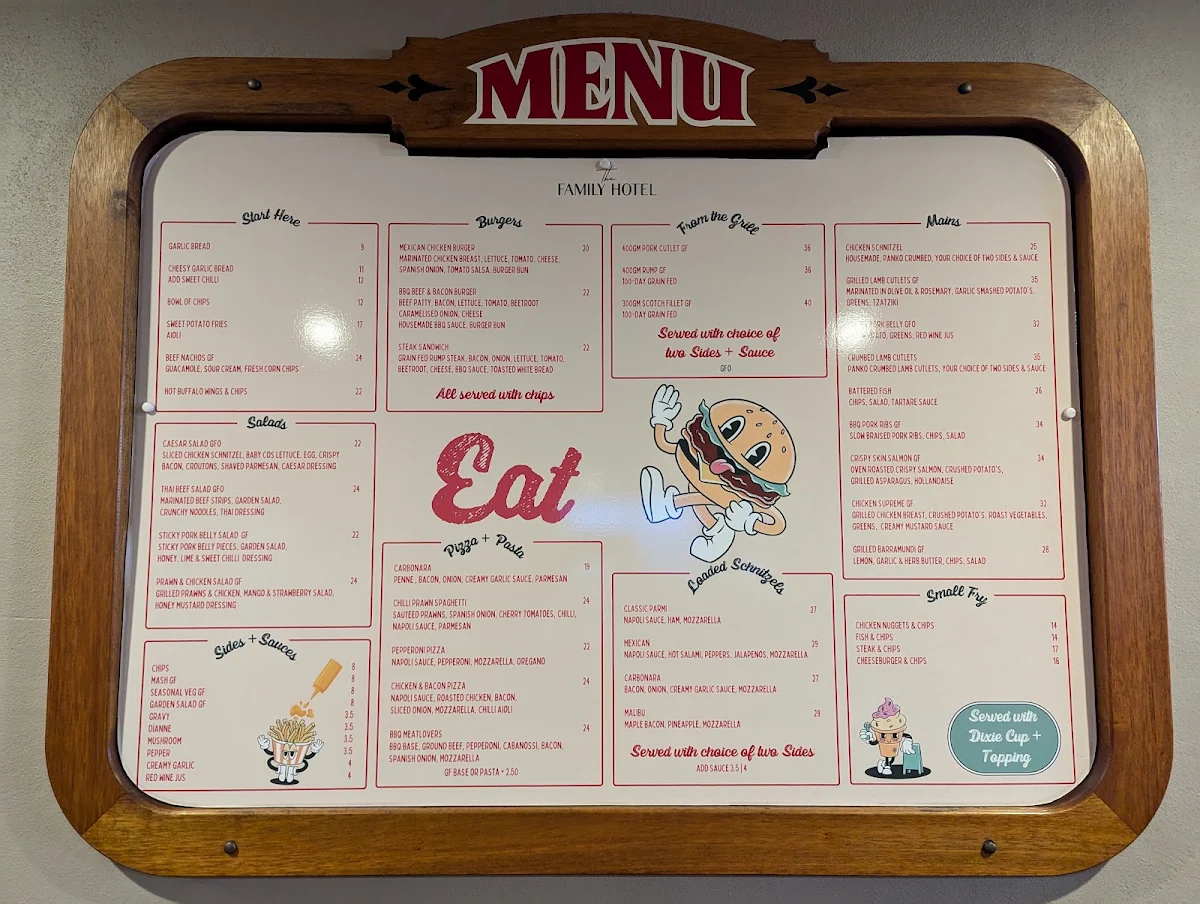 MENU
The
FAMILY HOTEL
Start Here
GARLIC BREAD 9
CHEESY GARLIC BREAD 11
ADD SWEET CHILLI 12
BOWL OF CHIPS 12
SWEET POTATO FRIES 17
AIOLI
BEEF NACHOS GF 24
GUACAMOLE, SOUR CREAM, FRESH CORN CHIPS
HOT BUFFALO WINGS & CHIPS 22
Salads
CAESAR SALAD GFO 22
SLICED CHICKEN SCHNITZEL, BABY COS LETTUCE, EGG, CRISPY
BACON, CROUTONS, SHAVED PARMESAN, CAESAR DRESSING
THAI BEEF SALAD GFO 24
MARINATED BEEF STRIPS, GARDEN SALAD,
CRUNCHY NOODLES, THAI DRESSING
STICKY PORK BELLY SALAD GF 22
STICKY PORK BELLY PIECES, GARDEN SALAD,
HONEY, LIME & SWEET CHILLI DRESSING
PRAWN & CHICKEN SALAD GF 24
GRILLED PRAWNS & CHICKEN, MANGO & STRAWBERRY SALAD,
HONEY MUSTARD DRESSING
Sides + Sauces
CHIPS 8
MASH GF 8
SEASONAL VEG GF 8
GARDEN SALAD GF 8
GRAVY 3.5
DIANNE 3.5
MUSHROOM 3.5
PEPPER 3.5
CREAMY GARLIC 4
RED WINE JUS 4
Burgers
MEXICAN CHICKEN BURGER 20
MARINATED CHICKEN BREAST, LETTUCE, TOMATO, CHEESE,
SPANISH ONION, TOMATO SALSA, BURGER BUN
BBQ BEEF & BACON BURGER 22
BEEF PATTY, BACON, LETTUCE, TOMATO, BEETROOT
CARAMELISED ONION, CHEESE
HOUSEMADE BBQ SAUCE, BURGER BUN
STEAK SANDWICH 22
GRAIN FED RUMP STEAK, BACON, ONION, LETTUCE, TOMATO,
BEETROOT, CHEESE, BBQ SAUCE, TOASTED WHITE BREAD
All served with chips
Eat
Pizza + Pasta
CARBONARA 19
PENNE, BACON, ONION, CREAMY GARLIC SAUCE, PARMESAN
CHILLI PRAWN SPAGHETTI 24
SAUTEED PRAWNS, SPANISH ONION, CHERRY TOMATOES, CHILLI,
NAPOLI SAUCE, PARMESAN
PEPPERONI PIZZA 22
NAPOLI SAUCE, PEPPERONI, MOZZARELLA, OREGANO
CHICKEN & BACON PIZZA 24
NAPOLI SAUCE, ROASTED CHICKEN, BACON,
SLICED ONION, MOZZARELLA, CHILLI AIOLI
BBQ MEATLOVERS 24
BBQ BASE, GROUND BEEF, PEPPERONI, CABANOSSI, BACON,
SPANISH ONION, MOZZARELLA
GF BASE OR PASTA + 2.50
From the Grill
400GM PORK CUTLET GF 36
400GM RUMP GF 36
100-DAY GRAIN FED
300GM SCOTCH FILLET GF 40
100-DAY GRAIN FED
Served with choice of
two Sides + Sauce
GFO
Loaded Schnitzels
CLASSIC PARMI 27
NAPOLI SAUCE, HAM, MOZZARELLA
MEXICAN 29
NAPOLI SAUCE, HOT SALAMI, PEPPERS, JALAPENOS, MOZZARELLA
CARBONARA 27
BACON, ONION, CREAMY GARLIC SAUCE, MOZZARELLA
MALIBU 29
MAPLE BACON, PINEAPPLE, MOZZARELLA
Served with choice of two Sides
ADD SAUCE 3.5 | 4
Mains
CHICKEN SCHNITZEL 25
HOUSEMADE, PANKO CRUMBED, YOUR CHOICE OF TWO SIDES & SAUCE
GRILLED LAMB CUTLETS GF 35
MARINATED IN OLIVE OIL & ROSEMARY, GARLIC SMASHED POTATO'S,
GREENS, TZATZIKI
PORK BELLY GFO 32
GREENS, RED WINE JUS
CRUMBED LAMB CUTLETS 35
PANKO CRUMBED LAMB CUTLETS, YOUR CHOICE OF TWO SIDES & SAUCE
BATTERED FISH 26
CHIPS, SALAD, TARTARE SAUCE
BBQ PORK RIBS GF 34
SLOW BRAISED PORK RIBS, CHIPS, SALAD
CRISPY SKIN SALMON GF 34
OVEN ROASTED CRISPY SALMON, CRUSHED POTATO'S,
GRILLED ASPARAGUS, HOLLANDAISE
CHICKEN SUPREME GF 32
GRILLED CHICKEN BREAST, CRUSHED POTATO'S, ROAST VEGETABLES,
GREENS, CREAMY MUSTARD SAUCE
GRILLED BARRAMUNDI GF 28
LEMON, GARLIC & HERB BUTTER, CHIPS, SALAD
Small Fry
CHICKEN NUGGETS & CHIPS 14
FISH & CHIPS 14
STEAK & CHIPS 17
CHEESEBURGER & CHIPS 16
Served with
Dixie Cup +
Topping